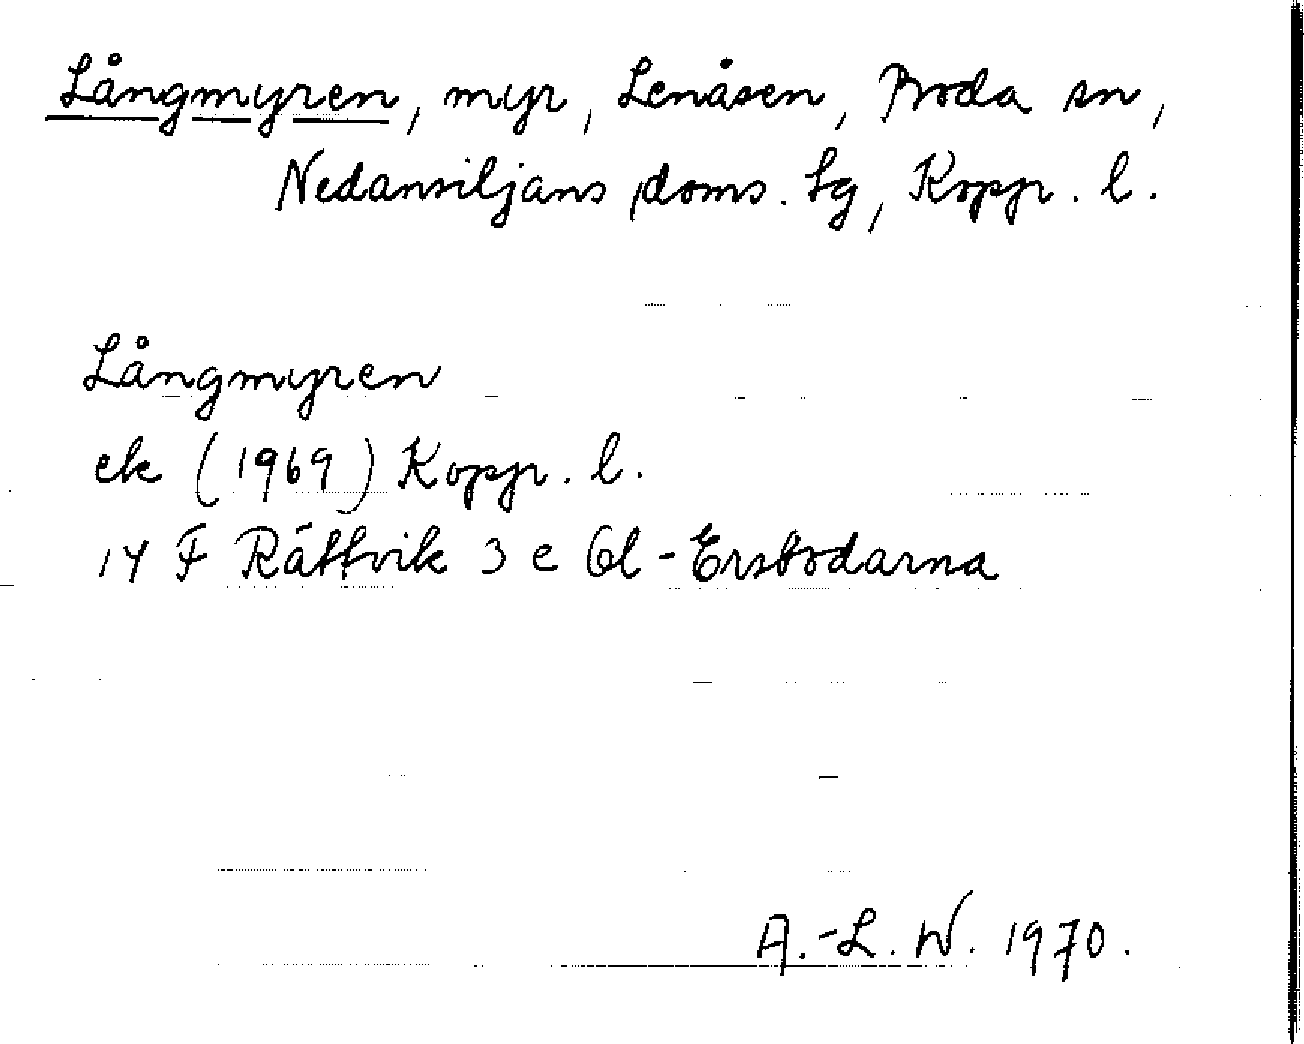 Långmyren, myr, Lenåsen, Boda sn,
Nedansiljans doms. tg, Kopp. l.
Långmyren
ek (1969) Kopp. l.
14 F Rättvik 3 e Gl-Ersbodarna
A.-L. W. 1970.